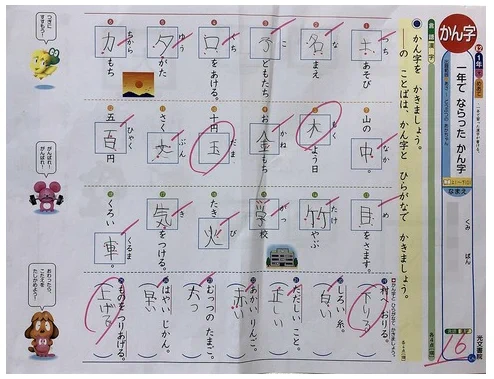 かん字
1年
一年で ならった かん字
なまえ
くみ
ばん
16
光文書院
かん字を かきましょう。
―の ことばは、かん字と ひらがなで かきましょう。
あそび
な
名まえ
こ
子どもたち
くち
口をあける。
ゆう
夕がた
ちから
力もち
山の中。
もく
木よう日
かね
お金もち
だま
十円玉
さく文
ぶん
ひゃく
五百円
め
目をさます。
たけ
竹やぶ
がっ
学校
たき火
び
気をつける。
くろい車。
くるま
村へおりる。
下りる
しろい糸。
白い
ただしいこと。
正しい
あかいりんご。
赤い
むっつのたまご。
六つ
はやいじかん。
早い
ものをつりあげる。
上げる
つぎに すすもう!
がんばれ!
がんばれ!
おわったら、こたえを たしかめよう!